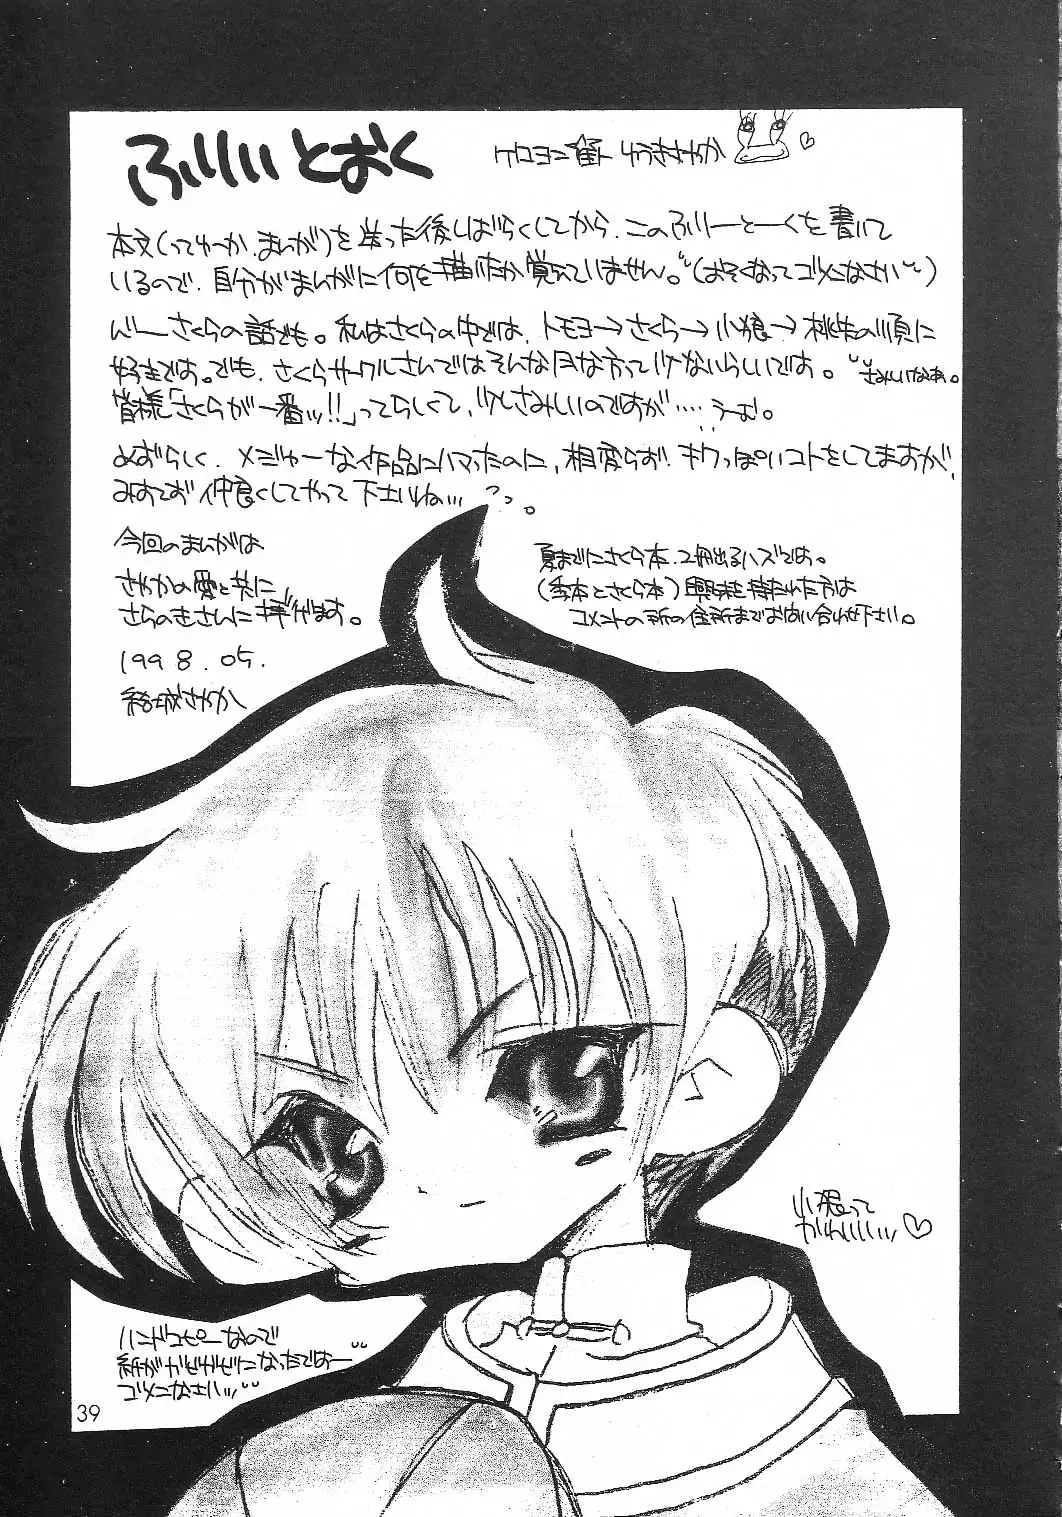 ふりぃとおく
ケロヨン雀ト ゆうきさやか
本文(ってゆーか、まんが)を送った後しばらくしてから、このふりーとーくを書いて
いるので、自分がまんがに何を描いたか覚えていません。(おそくなってゴメンなさい)
んーさくらの話でも。私はさくらの中では、トモヨ→さくら→小狼→桃矢の順に
好きです。でも、さくらサークルさんではそんな方って少ないらしいです。さみしいなあ。
皆様「さくらが一番ッ!!」ってらしくて、少しさみしいのですが‥‥うーむ。
めずらしく、メジャーな作品にハマったのに、相変らず、キワっぽいコトをしてますが、
みすてず仲良くしてやって下さいね…
今回のまんがは
さやかの愛と共に
さらのきさんに捧げます。
1998.05.
結城さやか
夏までにさくら本、2冊出るハズです。
(李本とさくら本)興味を持たれた方は
コメントの所の住所までお問い合わせ下さい。
小狼って
かわいいいッ
ハンドコピーなので
紙がガビガビになったですー
ゴメンなさいッ
39